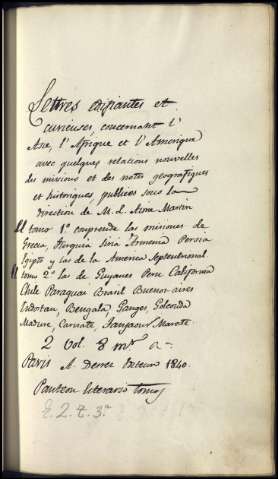 Lettres edifiantes et
curieuses, concernant l'
Asie, l'Afrique et l'Amerique
avec quelques relations nouvelles
des missions et des notes geografiques
et historiques, publiées sous la
direction de M. L. Aime Martin
El tomo 1º comprende las misiones de
Grecia, Turquia Siria Armenia Persia
Egipto y las de la America Septentrional
El tomo 2º las de Guyanes Peru California
Chile Paraguai Brasil Buenos-aires
Indostan, Bengala, Ganges, Golconda
Madure, Carnate, Tanjaour Marate
2 Vol. 8 mºr
Paris A. Desrez Editeur 1840.
Panteon literario Tomos
E. 2. t. 3ª